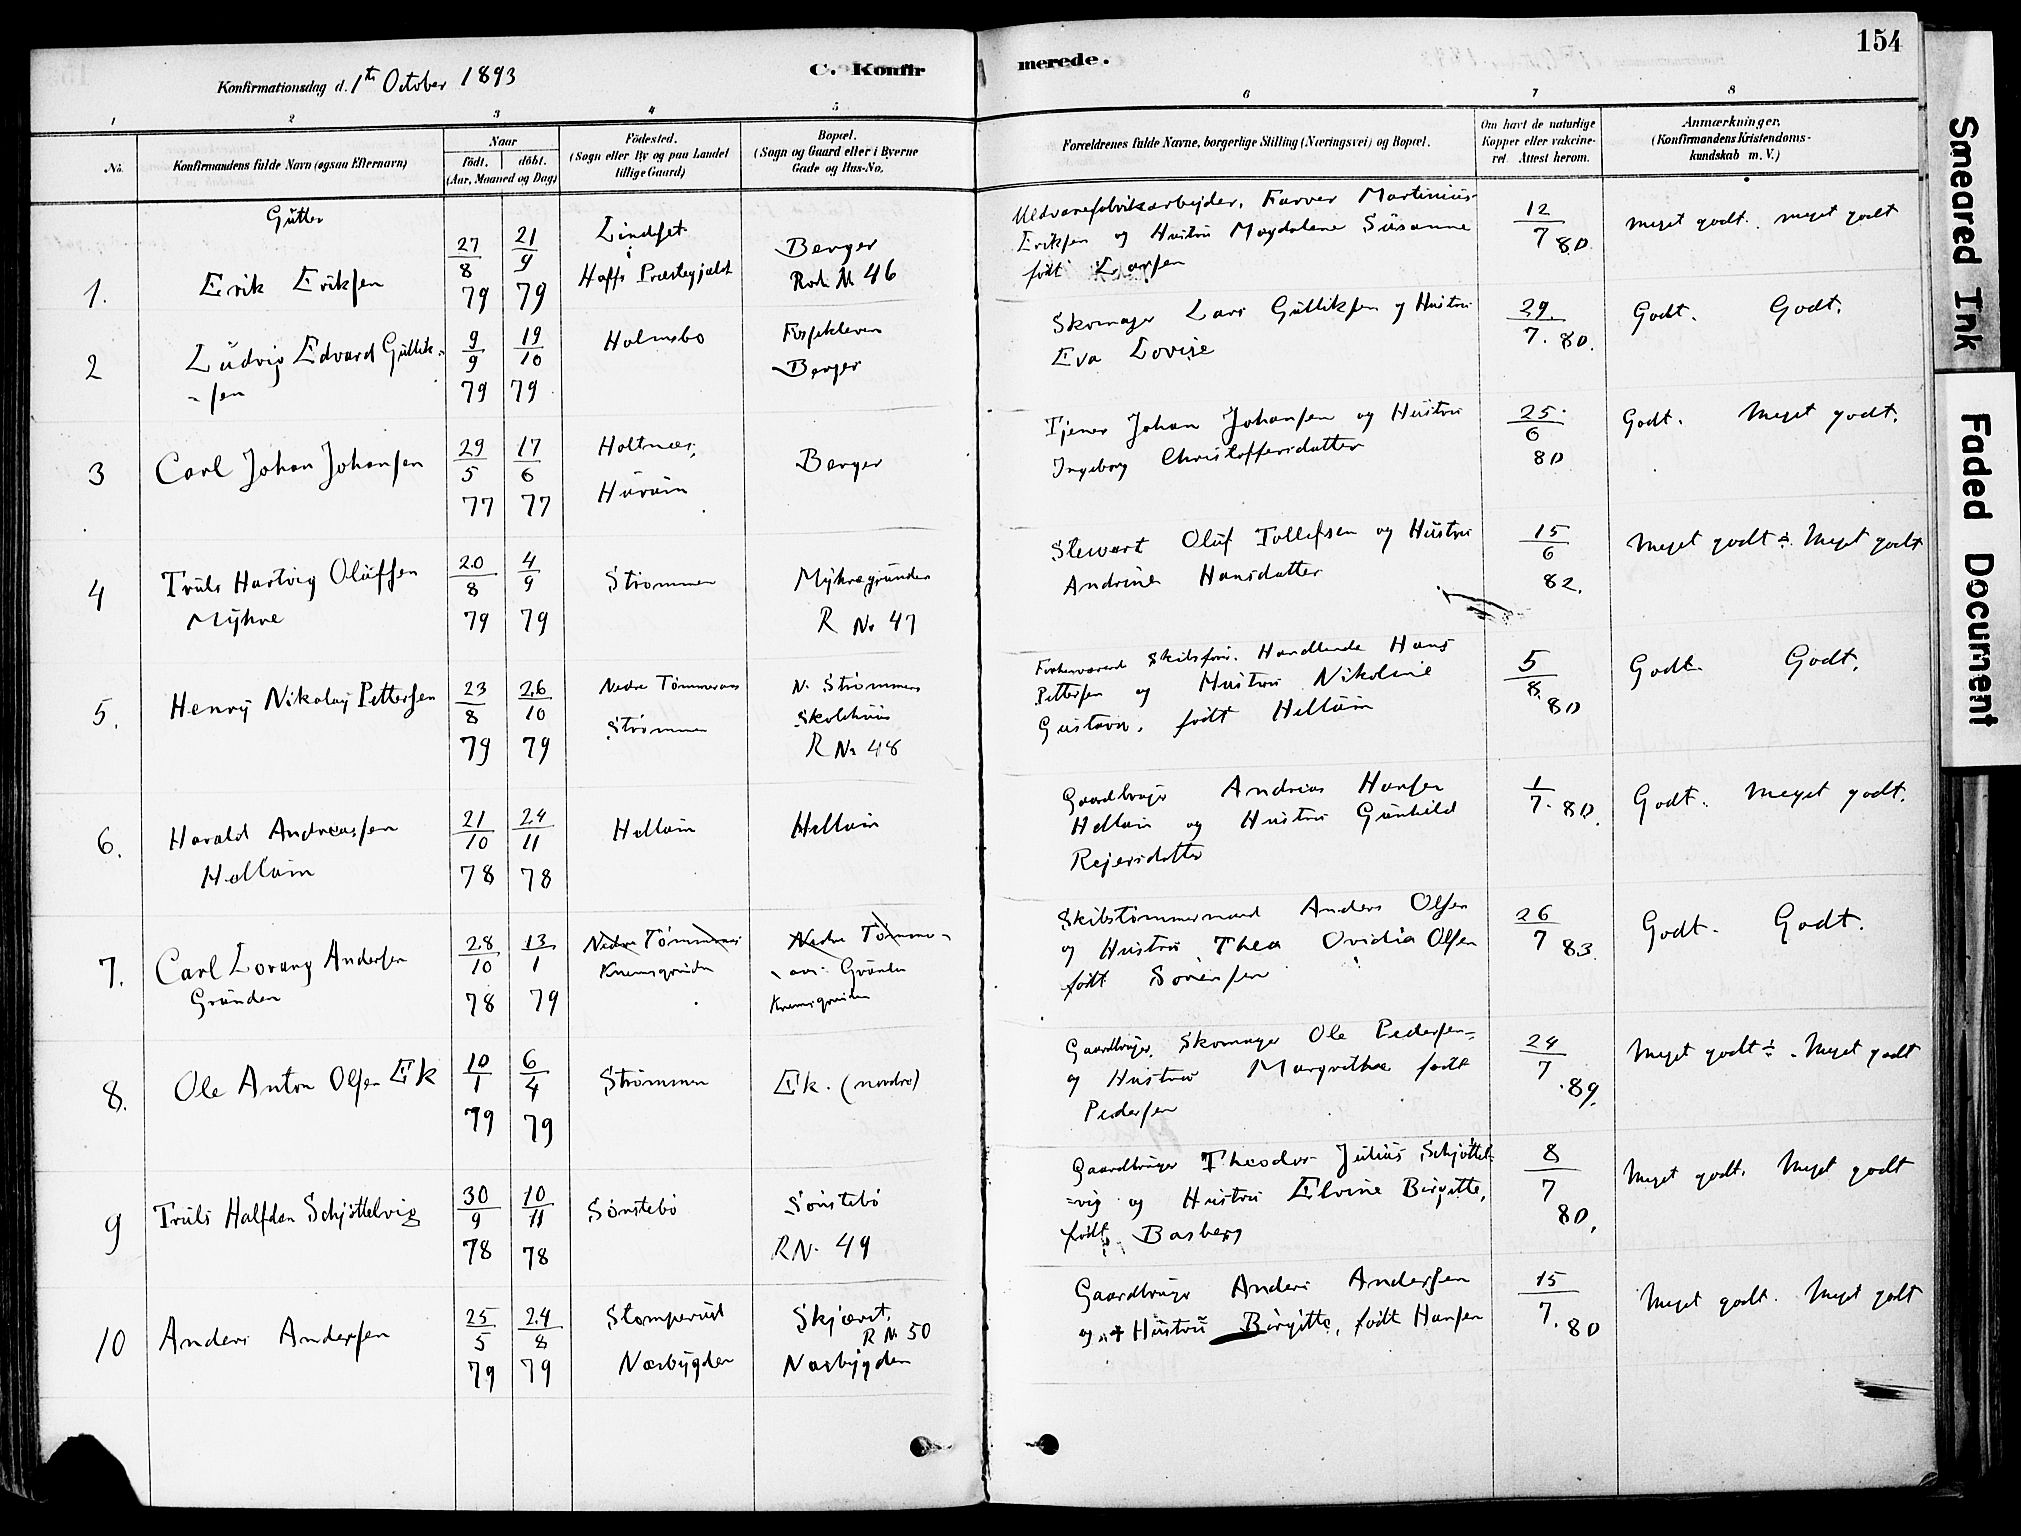 Konfirmationsdag d. 1th October 1893
C. Konfirmerede.
154
1 2 3 4 5 6 7 8
No.
Konfirmandens fulde Navn (ogsaa Efternavn)
Naar
født. døbt.
(Aar, Maaned og Dag)
Fødested.
(Sogn eller By og paa Landet
tillige Gaard)
Bopæl.
(Sogn og Gaard eller i Byerne
Gade og Hus-No.
Forældrenes fulde Navne, borgerlige Stilling (Næringsvei) og Bopæl.
Om havt de naturlige
Kopper eller vakcine-
ret. Attest herom.
Anmærkninger,
(Konfirmandens Kristendoms-
kundskab m. V.)
Gutter
1. Erik Eriksen
27/8 79
21/9 79
Lindset
i
Hoffs Præstegjæld
Berger
Rode No 46
Uldvarefabrikarbejder, Farver Martinius
Eriksen og Hustru Magdalene Susanne
født Larsen
12/7 80.
Meget godt. meget godt
2 Ludvig Edvard Gullik-
-sen
9/9 79
19/10 79
Holmsbo
Fossekleven
Berger
Skomager Lars Gulliksen og Hustru
Eva Lovise
29/7. 80.
Godt. Godt.
3 Carl Johan Johansen
29/5 77
17/6 77
Holtnæs,
Hurum
Berger
Tjener Johan Johansen og Hustru
Ingeborg Christoffersdatter
25/6 80
Godt. Meget godt.
4 Truls Hartvig Olufsen
Myhre
20/8 79
4/9 79
Strømmen
Myhregrunden
R No 47
Stewart Oluf Tollefsen og Hustru
Andrine Hansdatter
15/6 82.
Meget godt ÷. Meget godt
5. Henry Nikolay Pettersen
23/8 79
26/10 79
Nedre Tømmeraas
Strømmen
N. Strømmens
Skolehuus
R No 48
Forhenværend Skibsfør. Handlende Hans
Pettersen og Hustru Nikoline
Gustava, født Hellum
5/8. 80
Godt. Godt.
6. Harald Andreassen
Hellum
21/10 78
24/11 78
Hellum
Hellum
Gaardbruger Andreas Hansen
Hellum og Hustru Gunhild
Rejersdatter
1/7. 80.
Godt. Meget godt.
7. Carl Lorang Andersen
Grunden
28/10 78
13/1 79
Nedre Tømmeraas
Knemsgrunden
Nedre Tømme-
-aas Grunden
Knemsgrunden
Skibstømmermand Anders Olsen
og Hustru Thea Ovidia Olsen
født Sørensen
26/7 83.
Godt. Godt.
8. Ole Anton Olsen Ek
10/1 79
6/4 79
Strømmen
Ek. (nordre)
Gaardbruger, Skomager Ole Pedersen
og Hustru Margrethe født
Pedersen
24/7 .89.
Meget godt ÷. Meget godt
9 Truls Halfdan Schjøttelvig
30/9 78
10/11 78
Sønstebø
Sønstebø
R N. 49
Gaardbruger Theodor Julius Schjøttel-
=vig og Hustru Elvine Birgitte,
født Basberg
8/7 80.
Meget godt. Meget godt
10 Anders Andersen
25/5 79
24/8 79
Stomperud
Næsbygden
Skjævst.
R No 50
Næsbygden
Gaardbruger Anders Andersen
og Hustru Birgitte, født Hansen
15/7. 80
Meget godt. Meget godt
Smeared Ink
Faded Document